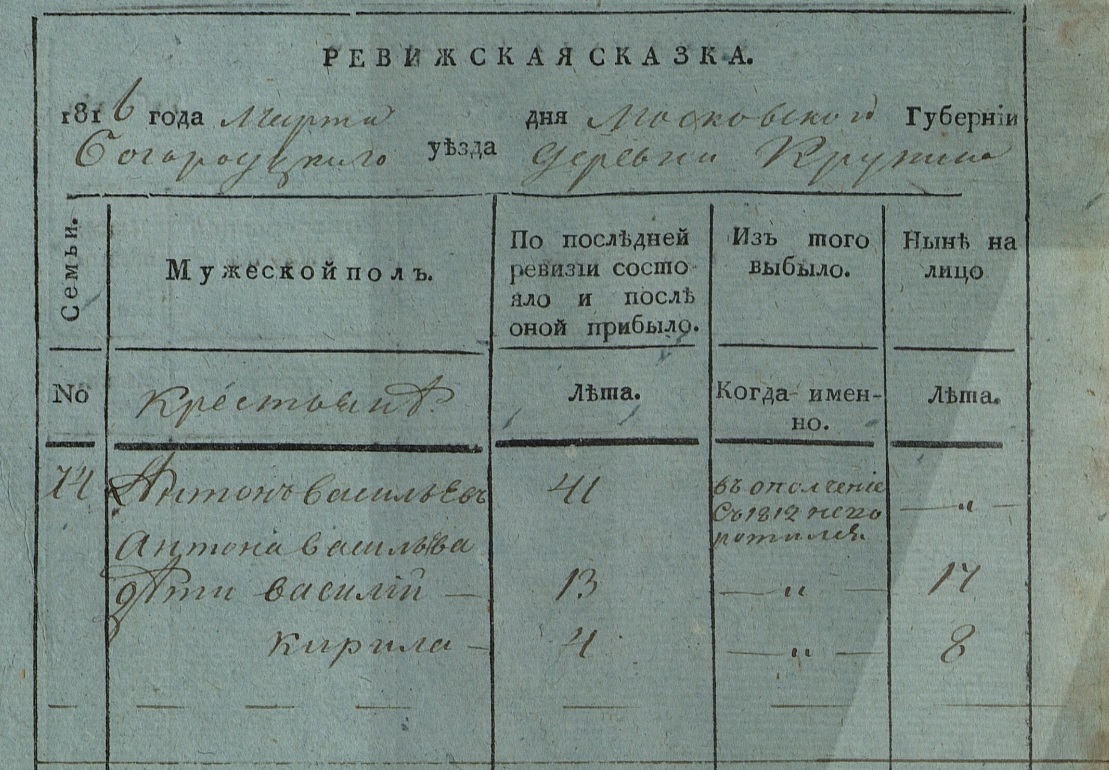 РЕВИЖСКАЯ СКАЗКА.
1816 года Марта дня Московского Губерніи
Богородцкого уѣзда деревни Крупина
Семьи.
Мужеской полъ.
По послѣдней
ревизіи состо
яло и послѣ
оной прибыло.
Изъ того
выбыло.
Нынѣ на
лицо
No
Крестьянѣ.
Лѣта.
Когда имен-
но.
Лѣта.
74 Антонъ васильевъ 41
въ ополченіе
съ 1812 не
ротился.
— „ —
Антона васильева
дѣти василій — 13 — „ — 17
кирила — 4 — „ — 8